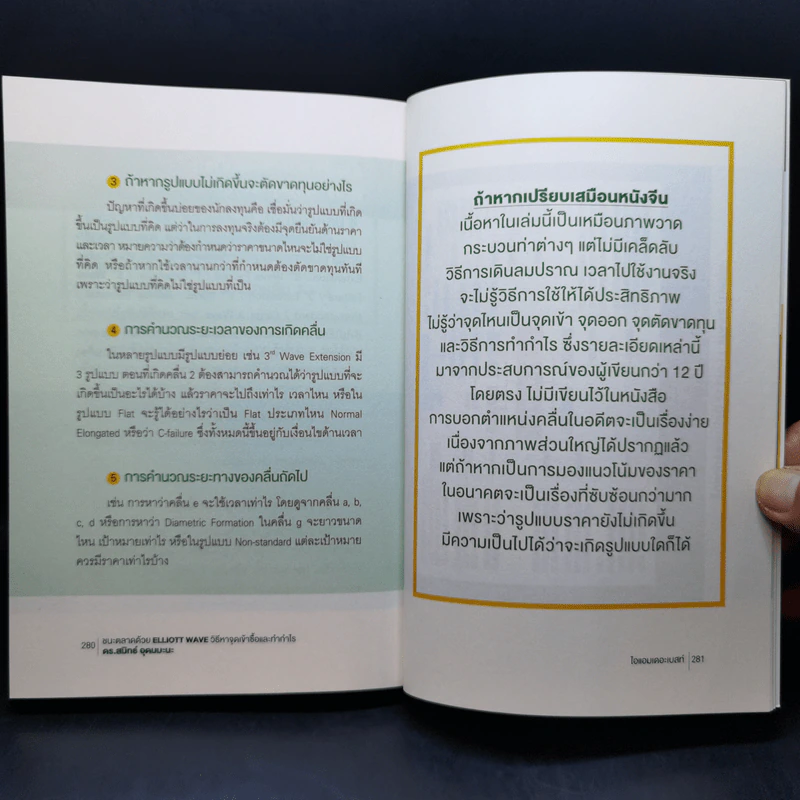 3 ถ้าหากรูปแบบไม่เกิดขึ้นจะตัดขาดทุนอย่างไร
ปัญหาที่เกิดขึ้นบ่อยของนักลงทุนคือ เชื่อมั่นว่ารูปแบบที่เกิด
ขึ้นเป็นรูปแบบที่คิด แต่ว่าในการลงทุนจริงต้องมีจุดยืนยันด้านราคา
และเวลา หมายความว่าต้องกำหนดว่าราคาขนาดไหนจะไม่ใช่รูปแบบ
ที่คิด หรือถ้าหากใช้เวลานานกว่าที่กำหนดต้องตัดขาดทุนทันที
เพราะว่ารูปแบบที่คิดไม่ใช่รูปแบบที่เป็น
4 การคำนวณระยะเวลาของการเกิดคลื่น
ในหลายรูปแบบมีรูปแบบย่อย เช่น 3rd Wave Extension มี
3 รูปแบบ ตอนที่เกิดคลื่น 2 ต้องสามารถคำนวณได้ว่ารูปแบบที่จะ
เกิดขึ้นเป็นอะไรได้บ้าง แล้วราคาจะไปถึงเท่าไร เวลาไหน หรือใน
รูปแบบ Flat จะรู้ได้อย่างไรว่าเป็น Flat ประเภทไหน Normal
Elongated หรือว่า C-failure ซึ่งทั้งหมดนี้ขึ้นอยู่กับเงื่อนไขด้านเวลา
5 การคำนวณระยะทางของคลื่นถัดไป
เช่น การหาว่าคลื่น e จะใช้เวลาเท่าไร โดยดูจากคลื่น a, b,
c, d หรือการหาว่า Diametric Formation ในคลื่น g จะยาวขนาด
ไหน เป้าหมายเท่าไร หรือในรูปแบบ Non-standard แต่ละเป้าหมาย
ควรมีราคาเท่าไรบ้าง
280 ชนะตลาดด้วย ELLIOTT WAVE วิธีหาจุดเข้าซื้อและทำกำไร
ดร.สนิทธ์ อุดมมะนะ
ถ้าหากเปรียบเสมือนหนังจีน
เนื้อหาในเล่มนี้เป็นเหมือนภาพวาด
กระบวนท่าต่างๆ แต่ไม่มีเคล็ดลับ
วิธีการเดินลมปราณ เวลาไปใช้งานจริง
จะไม่รู้วิธีการใช้ให้ได้ประสิทธิภาพ
ไม่รู้ว่าจุดไหนเป็นจุดเข้า จุดออก จุดตัดขาดทุน
และวิธีการทำกำไร ซึ่งรายละเอียดเหล่านี้
มาจากประสบการณ์ของผู้เขียนกว่า 12 ปี
โดยตรง ไม่มีเขียนไว้ในหนังสือ
การบอกตำแหน่งคลื่นในอดีตจะเป็นเรื่องง่าย
เนื่องจากภาพส่วนใหญ่ได้ปรากฏแล้ว
แต่ถ้าหากเป็นการมองแนวโน้มของราคา
ในอนาคตจะเป็นเรื่องที่ซับซ้อนกว่ามาก
เพราะว่ารูปแบบราคายังไม่เกิดขึ้น
มีความเป็นไปได้ว่าจะเกิดรูปแบบใดก็ได้
ไอแอมเดอะเบสท์ 281